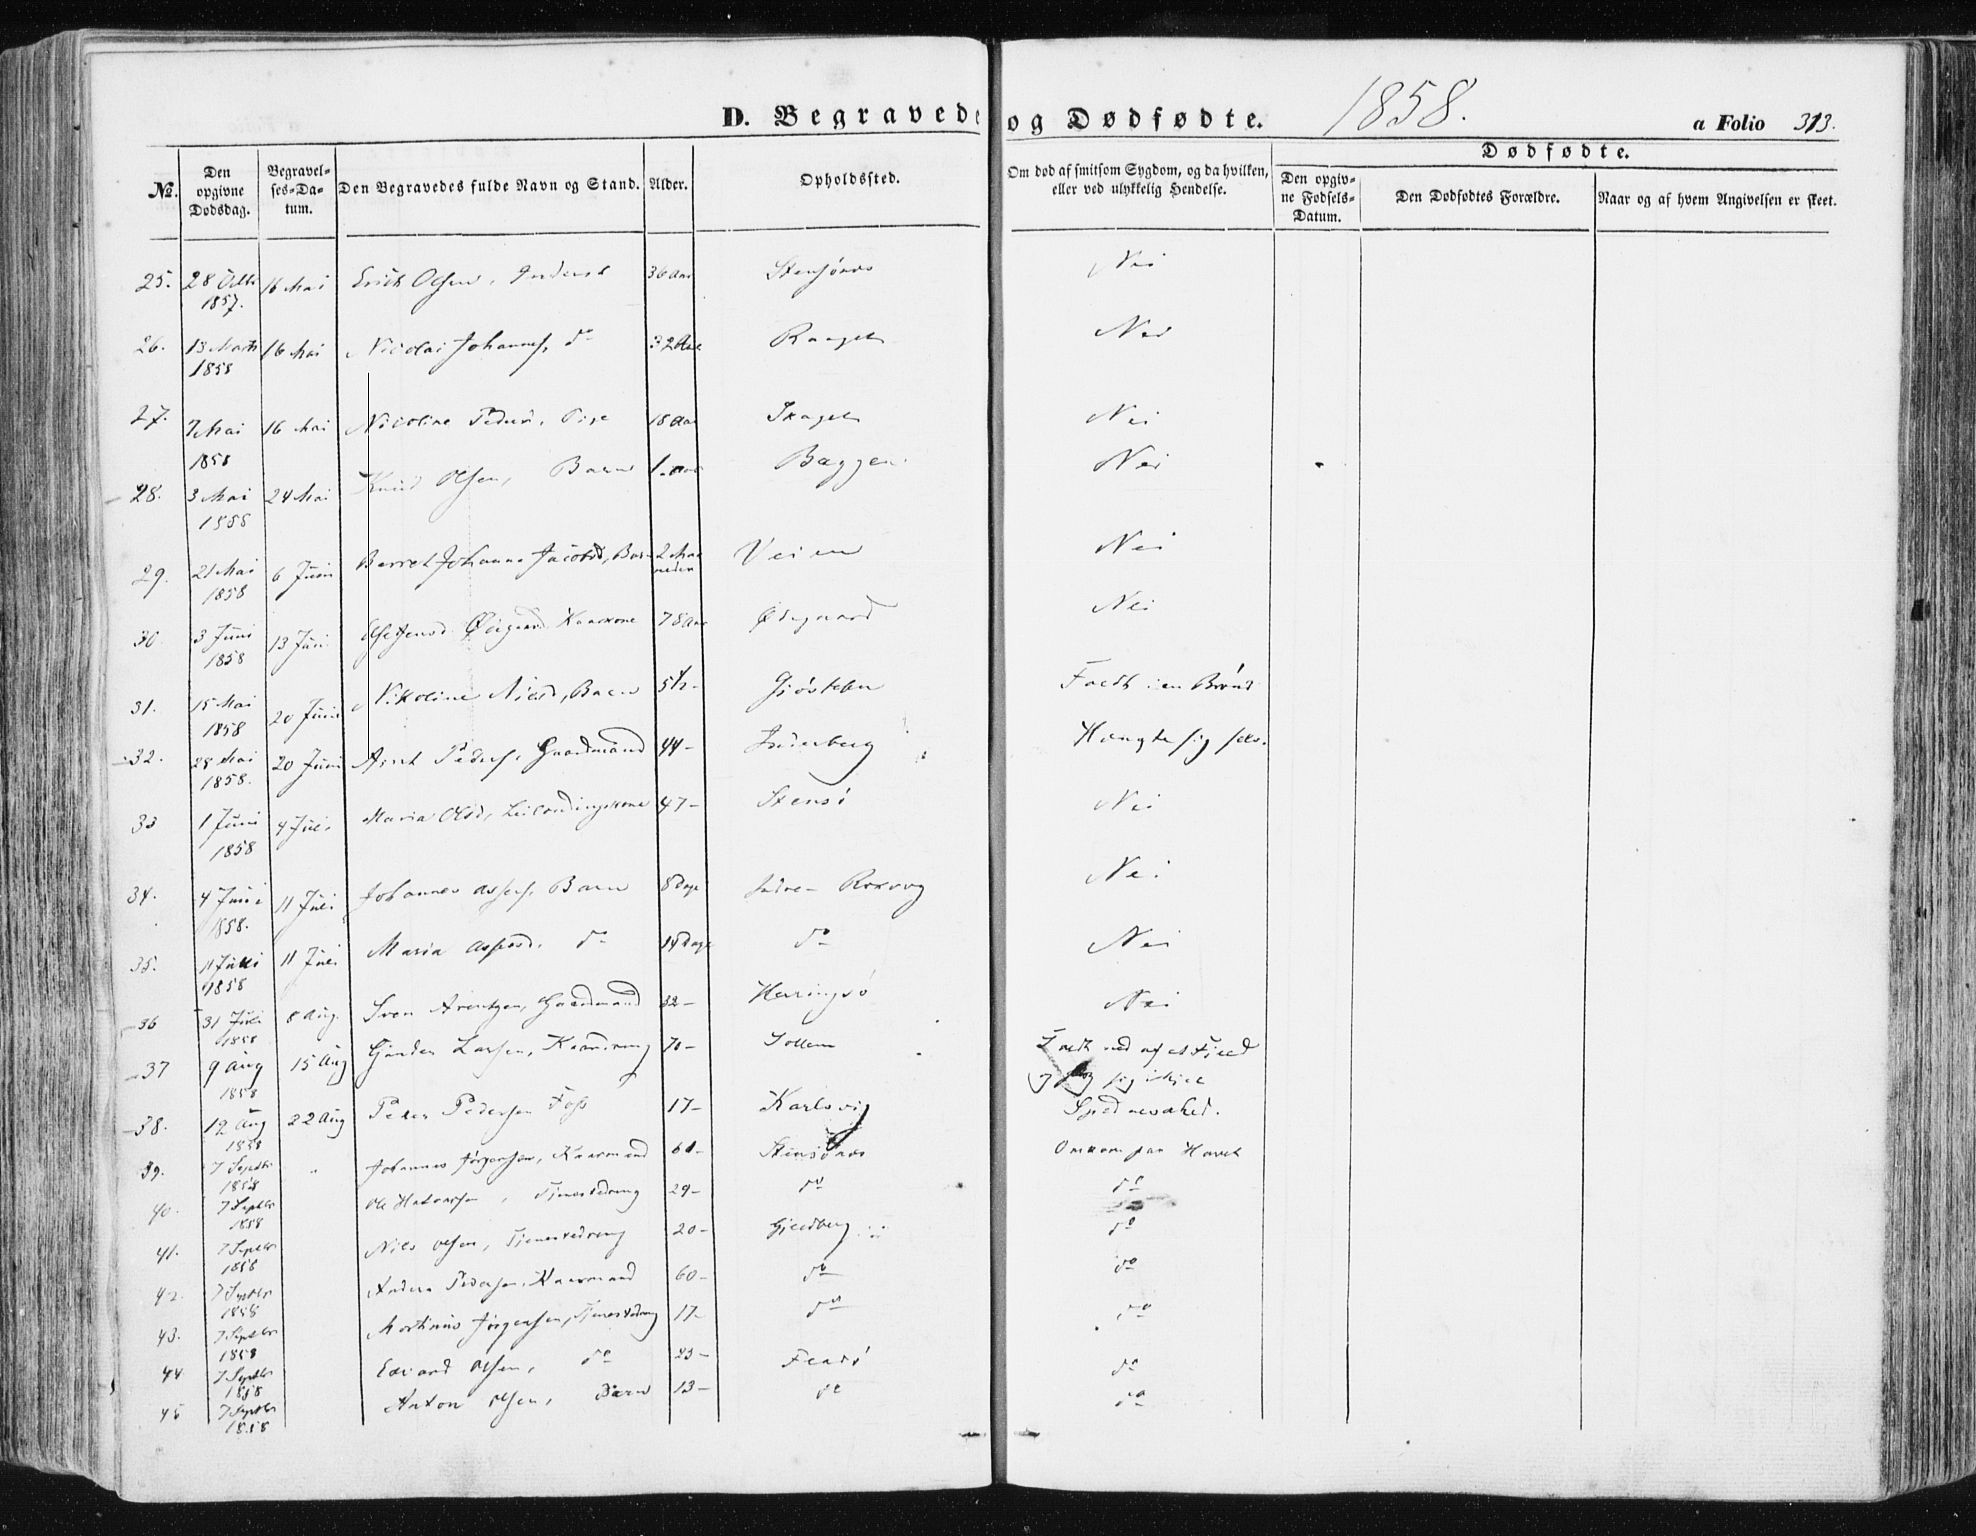 D. Begravede og Dødfødte. 1858. a Folio 313.
No. Den opgivne Dødsdag. Begravelses-Datum. Den Begravedes fulde Navn og Stand. Alder. Opholdssted. Om død af smitsom Sygdom, og da hvilken, eller ved ulykkelig Hendelse. Dødfødte.
Den opgivne Fødsels-Datum. Den Dødfødtes Forældre. Naar og af hvem Angivelsen er skeet.
25. 28 Octbr 1857. 16 Mai Erich Olsen, 36 Aar Nei
26. 13 Marts 1858 16 Mai Nicolai Johannes, do 32 Aar Nei
27. 7 Mai 1858 16 Mai Nicoline Peders, Pige 18 Aar Skaget Nei
28. 3 Mai 1858 24 Mai Knud Olsen, Barn 1 Aar Baggen Nei
29. 21 Mai 1858 6 Juni Berret Johanna Jacobsd, Barn 2 Maaneder Veien Nei
30. 3 Juni 1858 13 Juni Ødegaard Kaarkone 78 Aar Ødegaard Nei
31. 15 Mai 1858 20 Juni Nikoline Nilsd, Barn 5 1/2 - Faldt i en Brønd
32. 28 Mai 1858. 20 Juni Arnt Peders, Gaardmand 44 - Inderberg Hængte sig selv.
33 1 Juni 1858 4 Juli Maria Olsd, Leilendingskone 47 - Stensö Nei
34. 4 Juni 1858. 11 Juli Johannes Aspers, Barn 8 Dage Indre Roxvog Nei
35. 11 Juni 1858 11 Juli Maria Aspersd. do 14 Dage do Nei
36 31 Juli 1858 8 Aug. Sven Arentzen, Gaardmand 32 - Herringsö Nei
37 9 Aug 1858 15 Aug Larsen, 70 - Sollem Faldt ned af et Field og slog sig ihjel
38. 12 Aug 1858 22 Aug Peter Pedersen Foss 17 - Karlsvig
39. 7 Septbr 1858 " Johannes Jörgensen, Kaarmand 61 - Stensönes Omkom paa Havet
40. 7 Septbr 1858 Ole Halvorsen, Tjenestedreng 29 - do do
41. 7 Septbr 1858 Nils Olsen, Tjenestedreng 20 - Gjeedberg do
42. 7 Septbr 1858 Anders Pedersen, Kaarmand 60 - do do
43. 7 Septbr 1858 Mortinus Jörgensen, Tjenestedreng 17 - do do
44 7 Septbr 1858 Edvard Olsen, do 23 - do
45 7 Septbr 1858 Anton Olsen, Barn 13 - do do